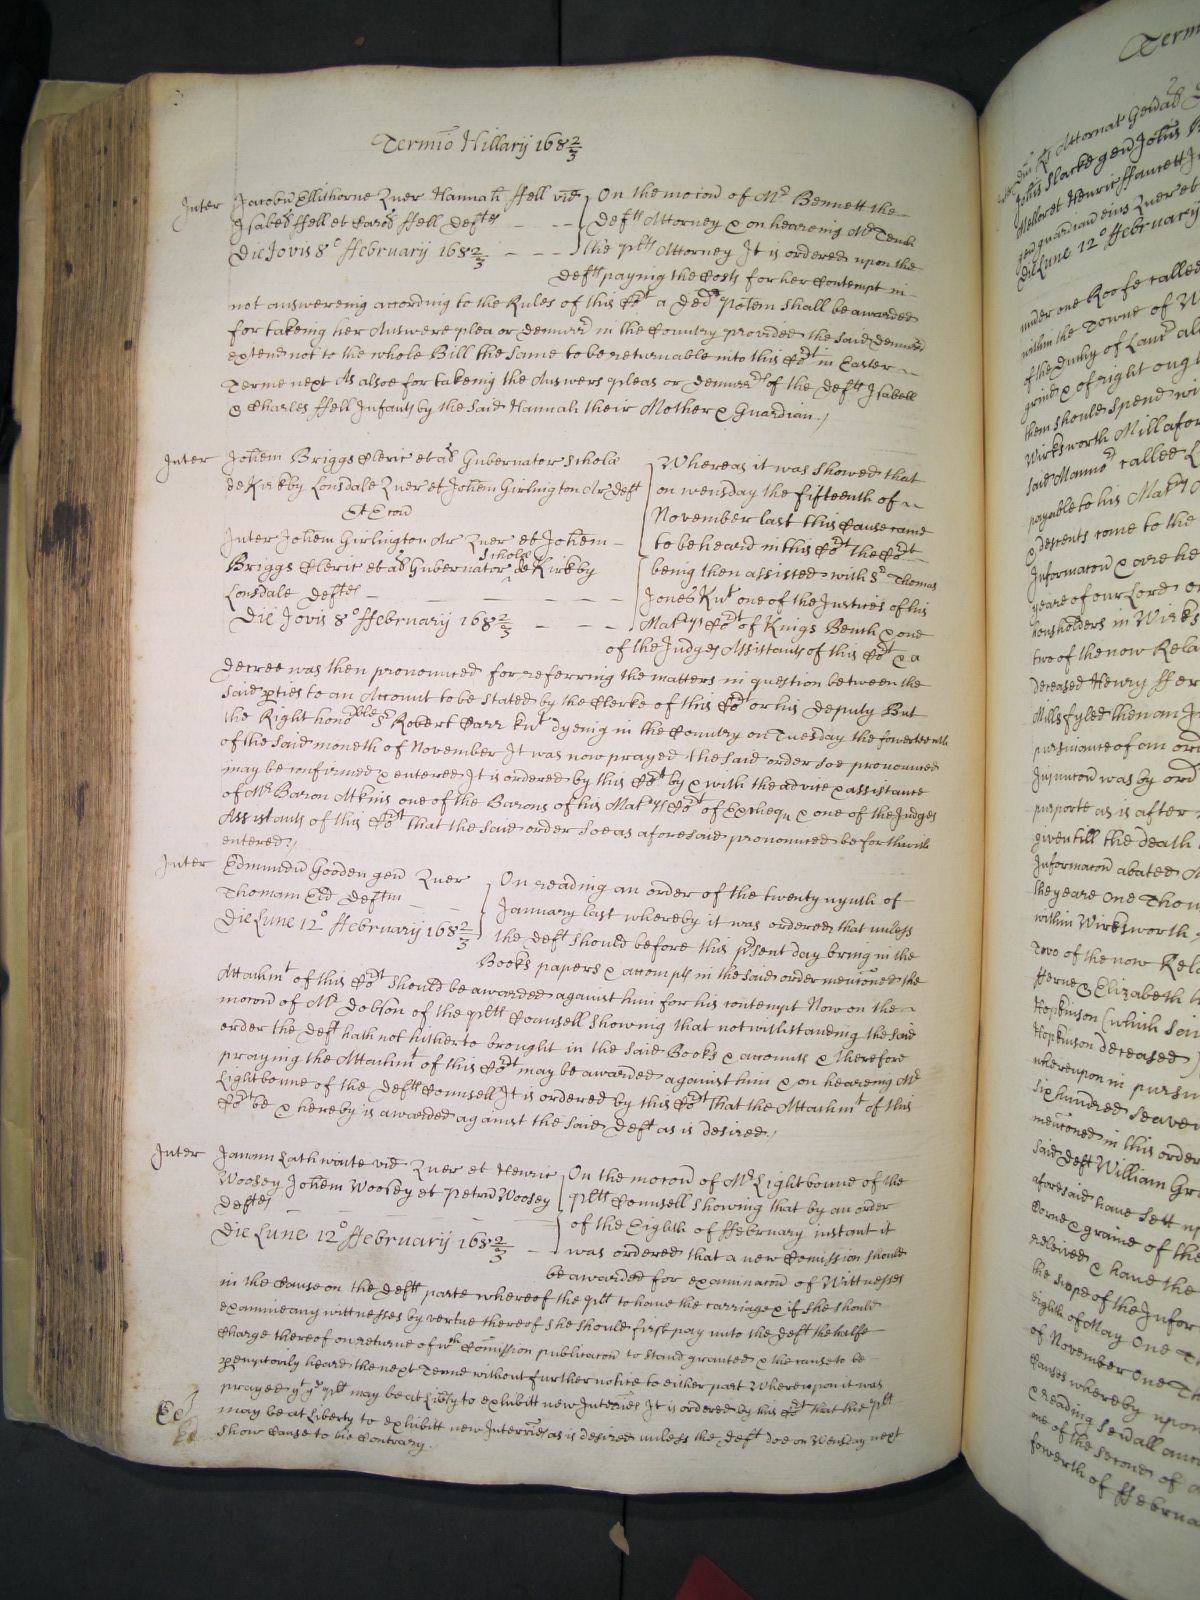 Termio Hillary 168 2/3
Inter Jacobu Ellithorne Quer Hannah ffell vid
Isabell ffell et Carol ffell Deftes
Die Jovis 8° ffebruary 168 2/3
On the mocon of Mr Bennett the
Defts Attorney & on heareing Mr
the plts Attorney It is ordered upon the
Deft paying the Costs for her Contempt in
not answereing according to the Rules of this Cort a Ded Potem shall be awarded
for takeing her Answere plea or demurr in the Country provided the said demurr
extend not to the whole Bill the same to be returnable into this Cort in Easter
Terme next As alsoe for takeing the Answers pleas or demurrs of the Defts Isabell
& Charles ffell Infants by the said Hannah their Mother & Guardian /
Inter Johem Briggs Cleric et al Gubernator Schole
de Kirkby Lonsdale Quer et Johem Girlington Ar Deft
Et Econ
Inter Johem Girlington Ar Quer et Johem
Briggs Cleric et al Gubernator Schole de Kirkby
Lonsdale Deftes
Die Jovis 8° ffebruary 168 2/3
Whereas it was showed that
on wensday the fifteenth of
November last this Cause came
to be heard in this Cort the Cort
being then assisted with Sr Thomas
Jones Knt one of the Justices of his
Matys Cort of Kings Bench & one
of the Judges Assistants of this Cort & a
decree was then pronounced for referring the matters in question betweene the
said pties to an Account to be stated by the Clerke of this Cort or his Deputy But
the Right honoble Sr Robert Carr knt dyeing in the Country on Tuesday the fowerteenth
of the said moneth of November It was now prayed the said order soe pronounced
may be confirmed & entered It is ordered by this Cort by & with the advice & assistance
of Mr Baron Atkins one of the Barons of his Matys Cort of Exchequ & one of the Judges
Assistants of this Cort that the said order soe as aforesaid pronounced be forthwith
entered /
Inter Edmundu Gooden gen Quer
Thomam Deftm
Die Lune 12° ffebruary 168 2/3
On reading an order of the twenty nynth of
January last whereby it was ordered that unless
the Deft should before this psent day bring in the
Books papers & accompts in the said order menconed the
Attachmt of this Cort should be awarded against him for his contempt Now on the
mocon of Mr Dobson of the plts Counsell showing that notwithstanding the said
order the Deft hath not hitherto brought in the said Books & accounts & therefore
praying the Attachmt of this Cort may be awarded against him & on heareing Mr
Lightbowne of the Defts Counsell It is ordered by this Cort that the Attachmt of this
Cort be & hereby is awarded against the said Deft as is desired /
Inter Janam Lathwaite vid Quer et Henric
Woosey Johem Woosey et Petru Woosey
Deftes
Die Lune 12° ffebruary 168 2/3
On the mocon of Mr Lightbound of the
plts Counsell showing that by an order
of the Eighth of ffebruary instant it
was ordered that a new Comission should
be awarded for examinacon of Wittnesses
in the Cause on the Defts parte whereof the plt to have the carriage & if she should
examine any wittnesses by vertue thereof she should first pay unto the Deft the halfe
charge thereof on returne of wch Comission publicacon to stand granted & the cause to be
pemptorily heard the next Terme without further notice to either part Whereupon it was
prayed yt ye plt may be at Libty to exhibitt new Interries It is ordered by this Cort that the plt
may be at Liberty to exhibitt new Interries as is desired unless the Deft doe on Wensday next
show Cause to the Contrary.
Term
Johis Slacke gen Johis
Die Lune 12° ffebruary
under one Roofe called
within the Towne of W
of the Duchy of Lanc
grind & of right ought
them should spend
Wirksworth Mill afor
said Mannor called
payable to his Matys
& descents come to the
Informacon & are he
yeare of our Lord
housholders in Wirks
two of the now Rela
deceased Henry ffer
Mills fyled then an
pursuance of an ord
Injuncon was by ord
purporte as is after
given till the death
Informacon abated
the yeare One Thou
within Wirksworth
Two of the now Rela
fferne & Elizabeth
Hopkinson (which said
Hopkinson deceased)
whereupon in pursu
six hundred seaven
menconed in this order
said Deft William Gr
aforesaid have sett up
Corne & graine of the
received & have the
the scope of the Infor
eighth of May One T
of November One Th
Causes whereby upon
& reading severall
one of the second of
fowerth of ffebrua